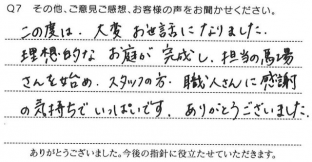 Q7 その他、ご意見ご感想、お客様の声をお聞かせください。
この度は、大変お世話になりました。
理想的なお庭が完成し、担当の馬場
さんを始め、スタッフの方、職人さんに感謝
の気持ちでいっぱいです。ありがとうございました。
ありがとうございました。今後の指針に役立たせていただきます。